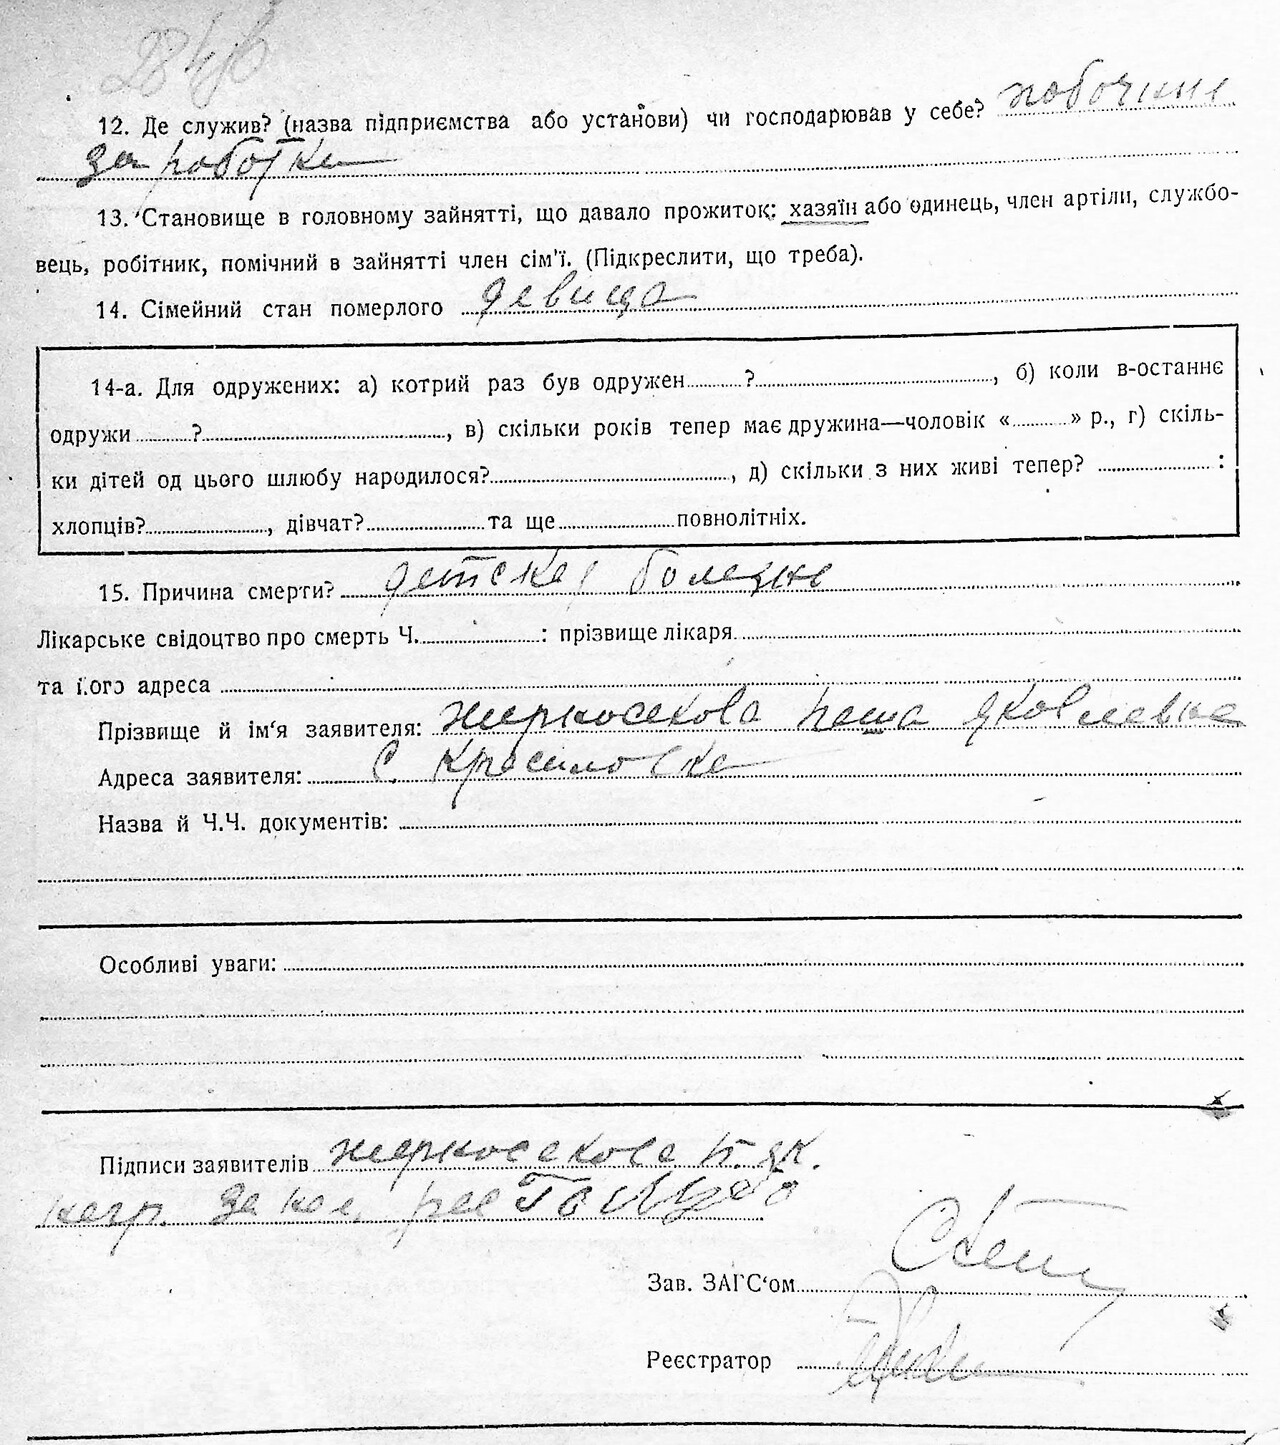 284
12. Де служив? (назва підприємства або установи) чи господарював у себе? побочные
заработки
13. Становище в головному зайнятті, що давало прожиток: хазяїн або одинець, член артіли, службо-
вець, робітник, помічний в зайнятті член сім'ї. (Підкреслити, що треба).
14. Сімейний стан померлого девица
14-а. Для одружених: а) котрий раз був одружен ? , б) коли в-останнє
одружи ? , в) скільки років тепер має дружина—чоловік « » р., г) скіль-
ки дітей од цього шлюбу народилося? , д) скільки з них живі тепер? :
хлопців? , дівчат? та ще повнолітніх.
15. Причина смерти? детская болезнь
Лікарське свідоцтво про смерть Ч. : прізвище лікаря
та його адреса
Прізвище й ім'я заявителя: Яковлевна
Адреса заявителя: с. Красиловка
Назва й Ч.Ч. документів:
Особливі уваги:
Підписи заявителів
негр. за нее
Зав. ЗАГС'ом
Реєстратор